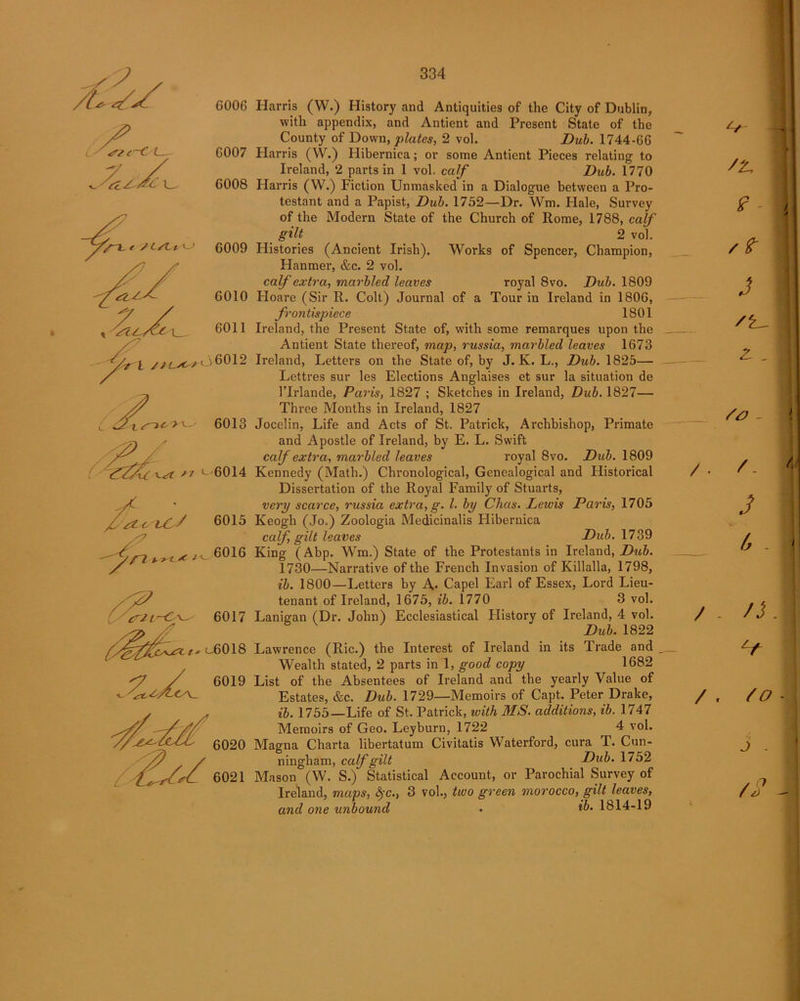 334
6006 Harris (W.) History and Antiquities of the City of Dublin,
with appendix, and Antient and Present State of the
County of Down, plates, 2 vol. Dub. 1744-66
6007 Harris (W.) Hibernica; or some Antient Pieces relating to
Ireland, 2 parts in 1 vol. calf Dub. 1770
6008 Harris (W.) Fiction Unmasked in a Dialogue between a Pro-
testant and a Papist, Dub. 1752—Dr. Wm. Hale, Survey
of the Modern State of the Church of Rome, 1788, calf
gilt 2 vol.
6009 Histories (Ancient Irish). Works of Spencer, Champion,
Hanmer, &c. 2 vol.
calf extra, marbled leaves royal 8vo. Dub. 1809
6010 Hoare (Sir R. Colt) Journal of a Tour in Ireland in 1806,
frontispiece 1801
6011 Ireland, the Present State of, with some remarques upon the
Antient State thereof, map, russia, marbled leaves 1673
6012 Ireland, Letters on the State of, by J. K. L., Dub. 1825—
Lettres sur les Elections Anglaises et sur la situation de
l'Irlande, Paris, 1827 ; Sketches in Ireland, Dub. 1827—
Three Months in Ireland, 1827
6013 Jocelin, Life and Acts of St. Patrick, Archbishop, Primate
and Apostle of Ireland, by E. L. Swift
calf extra, marbled leaves royal 8vo. Dub. 1809
6014 Kennedy (Math.) Chronological, Genealogical and Historical
Dissertation of the Royal Family of Stuarts,
very scarce, russia extra, g. l. by Chas. Lewis Paris, 1705
6015 Keogh (Jo.) Zoologia Medicinalis Hibernica
calf, gilt leaves Dub. 1739
6016 King (Abp. Wm.) State of the Protestants in Ireland, Dub.
1730—Narrative of the French Invasion of Killalla, 1798,
ib. 1800—Letters by A. Capel Earl of Essex, Lord Lieu-
tenant of Ireland, 1675, ib. 1770 3 vol.
6017 Lanigan (Dr. John) Ecclesiastical History of Ireland, 4 vol.
Dub. 1822
6018 Lawrence (Ric.) the Interest of Ireland in its Trade and
Wealth stated, 2 parts in 1, good copy 1682
6019 List of the Absentees of Ireland and the yearly Value of
Estates, &c. Dub. 1729—Memoirs of Capt. Peter Drake,
ib. 1755—Life of St. Patrick, with MS. additions, ib. 1747
Memoirs of Geo. Leyburn, 1722 4 vol.
6020 Magna Charta libertatum Civitatis Waterford, cura T. Cun-
ningham, calf gilt Dub. 1752
6021 Mason (W. S.) Statistical Account, or Parochial Survey of
Ireland, maps, &c., 3 vol., two green morocco, gilt leaves,
and one unbound ib. 1814-19